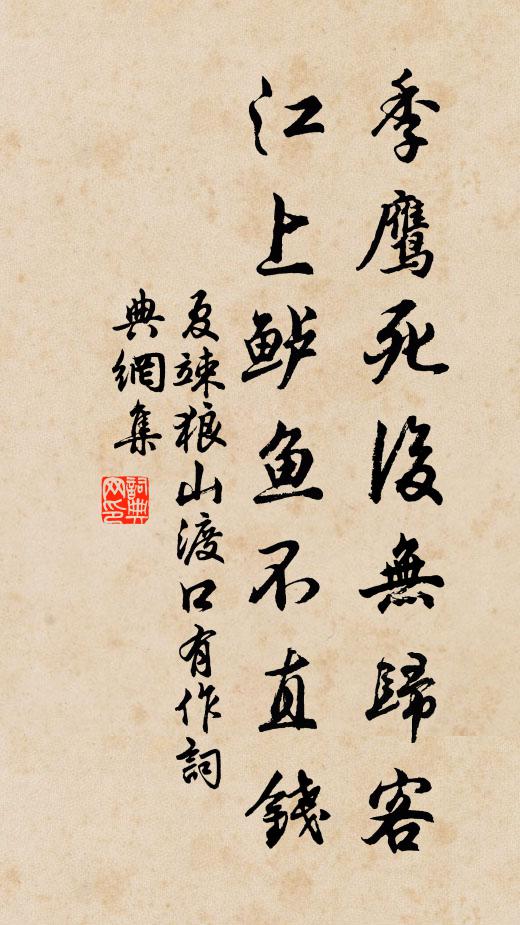 季鹰死後無歸客
江上鲈鱼不直錢
夏竦狼山渡口有作詞
典網集
詞典
网印